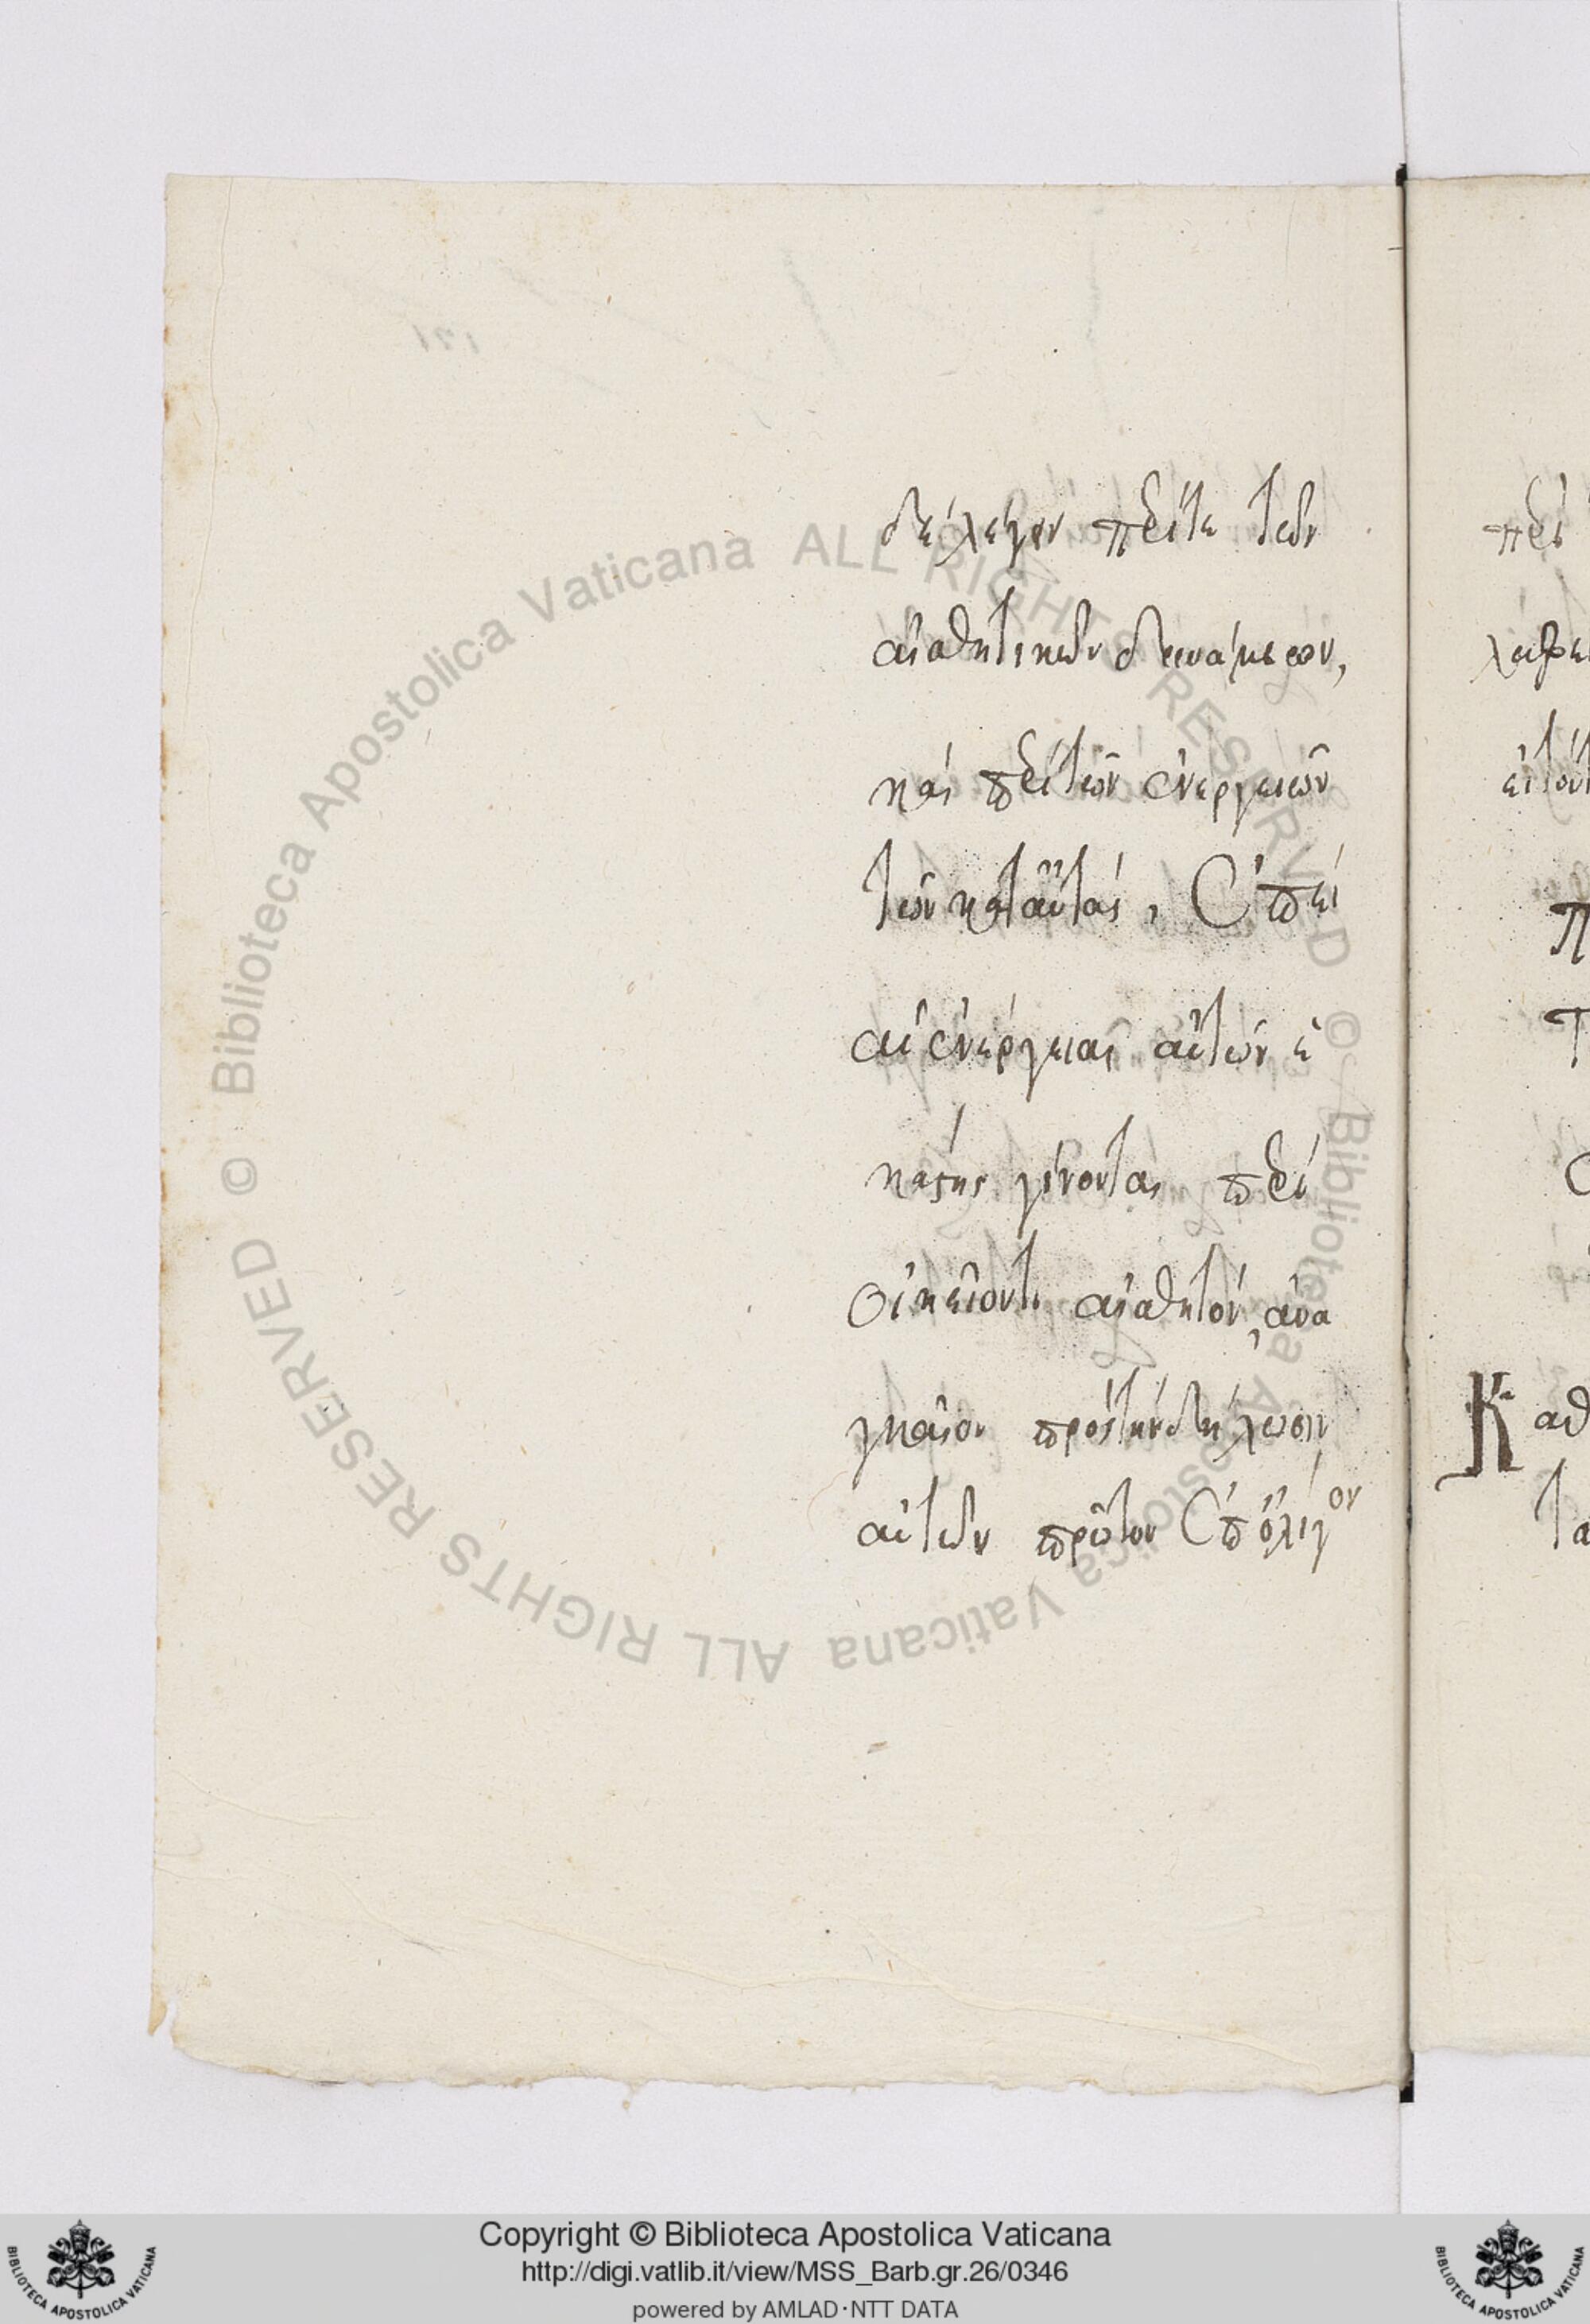 δὲ λέγον περί τε τῶν
αἰσθητικῶν δυνάμεων,
καὶ περὶ τῶν ἐνεργειῶν
τῶν κατ' αὐτὰς, ἐπεὶ
αἱ ἐνέργειαι αὐτῶν ἑ
κάστης γίνονται περί
οἰκεῖόν τι αἰσθητόν, ἀνα
γκαῖον πρὸς τὴν δήλωσιν
αὐτῶν πρῶτον ἐπ' ὀλίγον
περὶ
Κ αθ
Τα
© Biblioteca Apostolica Vaticana ALL RIGHTS RESERVED © Biblioteca Apostolica Vaticana ALL RIGHTS RESERVED
Copyright © Biblioteca Apostolica Vaticana
http://digi.vatlib.it/view/MSS_Barb.gr.26/0346
powered by AMLAD·NTT DATA
BIBLIOTECA APOSTOLICA VATICANA
BIBLIOTECA APOSTOLICA VATICANA